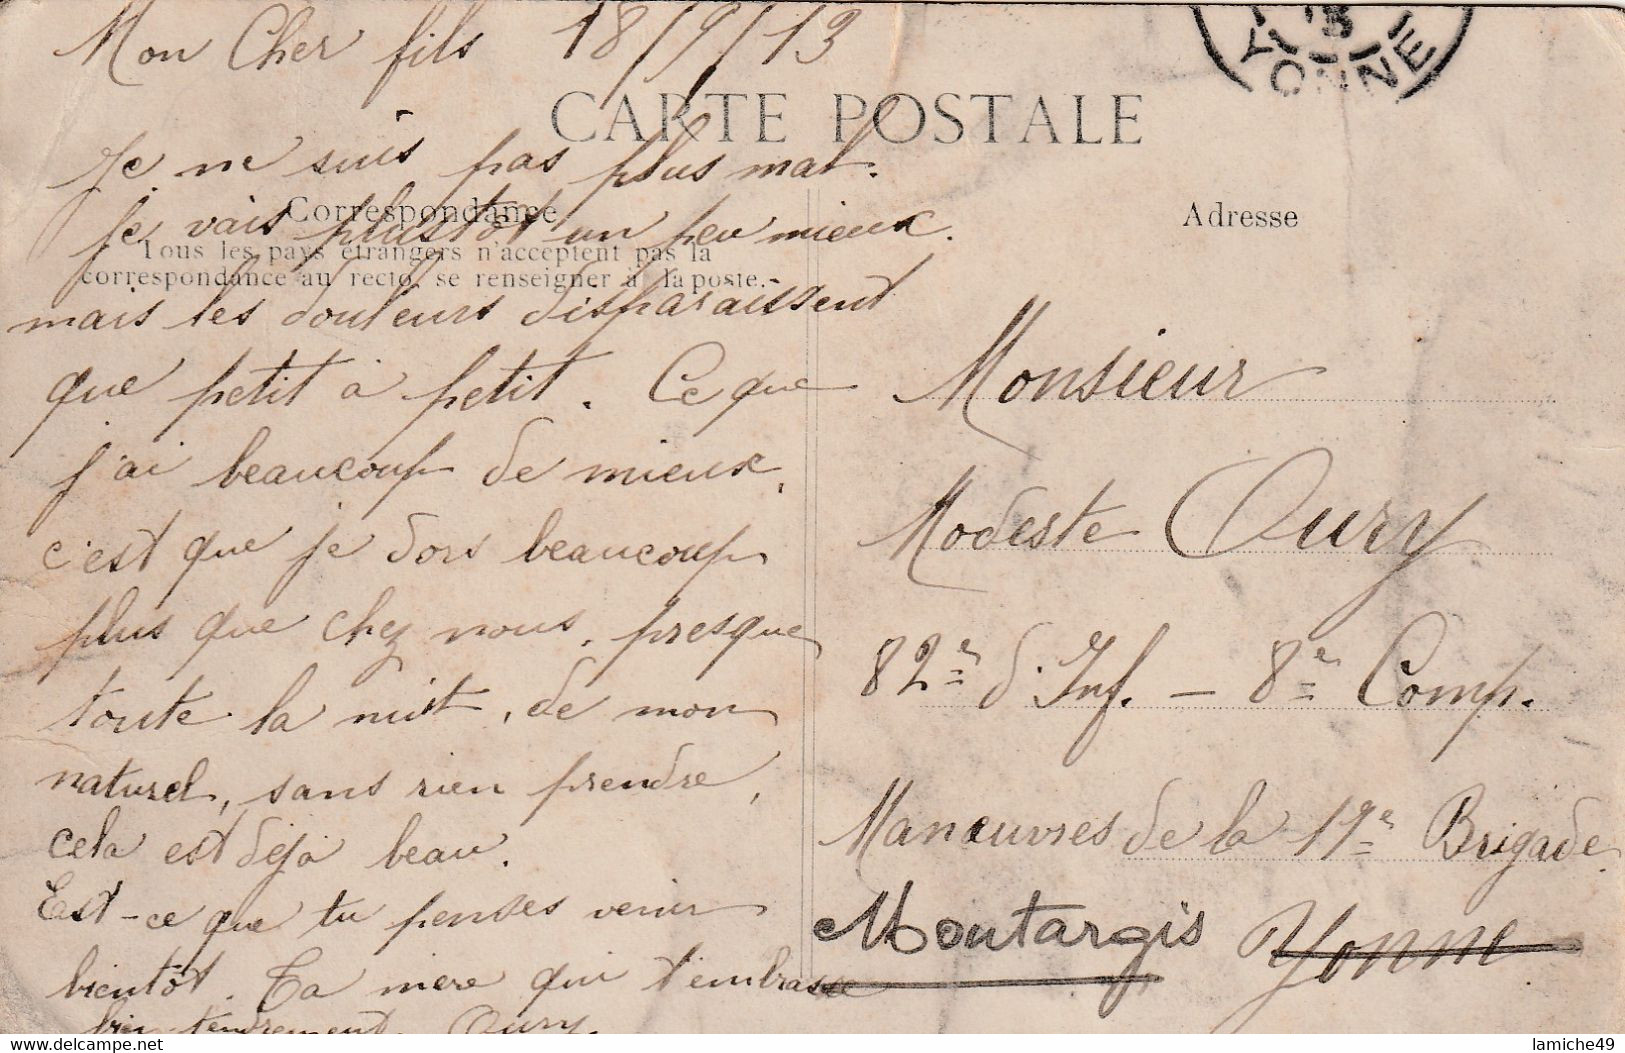 Mon Cher fils 18/9/13
YONNE
CARTE POSTALE
Je ne suis pas plus mal.
Correspondance
Je vais plustôt un peu mieux.
Tous les pays étrangers n'acceptent pas la
correspondance au recto, se renseigner à la poste.
mais les douleurs disparaissent
que petit à petit. Ce que
j'ai beaucoup de mieux,
c'est que je dors beaucoup
plus que chez nous, presque
toute la nuit, de mon
naturel, sans rien prendre,
cela est déjà beau.
Est-ce que tu penses venir
bientôt. Ta mère qui t'embrasse
bien tendrement. Oury.
Adresse
Monsieur
Modeste Oury
82e d'Inf. - 8e Comp.
Manœuvres de la 17e Brigade
Montargis Yonne
www.delcampe.net
lamiche49